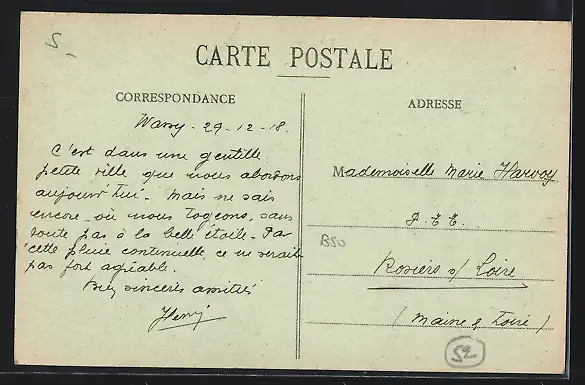 5
CARTE POSTALE
CORRESPONDANCE
Wassy - 29-12-18.
C'est dans une gentille
petite ville que nous abordons
aujourd'hui. Mais ne sais
encore où nous logeons, sans
doute pas à la belle étoile. Par
cette pluie continuelle, ce ne serait
pas fort agréable.
Bien sincères amitiés
Henri
ADRESSE
Mademoiselle Marie Harvoy
P.T.T.
B50
Rosiers s/ Loire
(Maine & Loire)
52